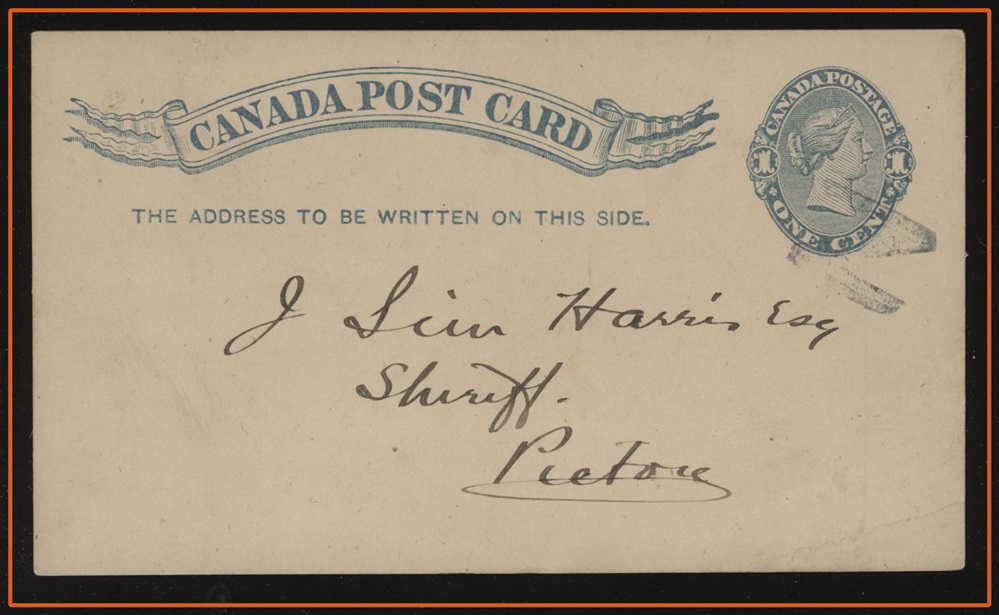 CANADA POST CARD
CANADA POSTAGE
1 1
ONE CENT
THE ADDRESS TO BE WRITTEN ON THIS SIDE.
J Sim Harris Esq
Sheriff.
Pictou